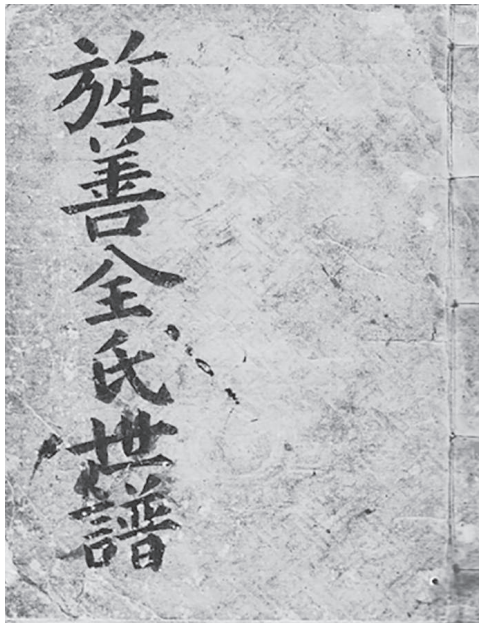 旌善全氏世譜